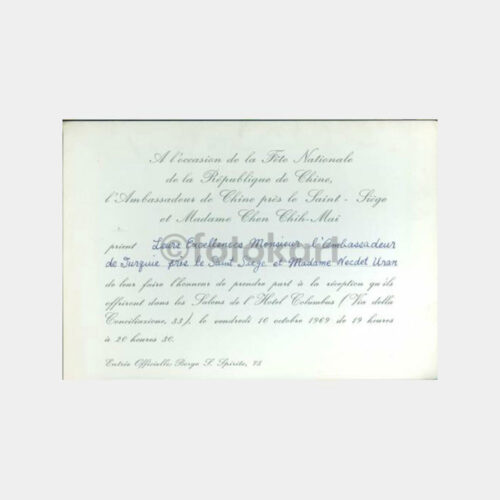 A l'occasion de la Fête Nationale
de la République de Chine,
l'Ambassadeur de Chine près le Saint-Siège
et Madame Chen Chih-Mai
©fotokart
prient Leurs Excellences Monsieur l'Ambassadeur
de Turquie près le Saint Siège et Madame Necdet Uran
de leur faire l'honneur de prendre part à la réception qu'ils
offriront dans les Salons de l'Hotel Columbus (Via della
Conciliazione, 33), le vendredi 10 octobre 1969 de 19 heures
à 20 heures 30.
Entrée Officielle, Borgo S. Spirito, 73